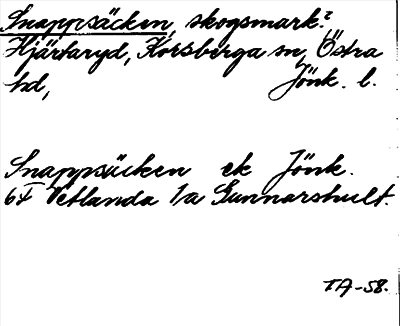 Snappsäcken, skogsmark?
Hjärtaryd, Korsberga sn, Östra
hd, Jönk. l.
Snappsäcken ek Jönk.
6F Vetlanda 1/a Gunnarshult.
TA-58.